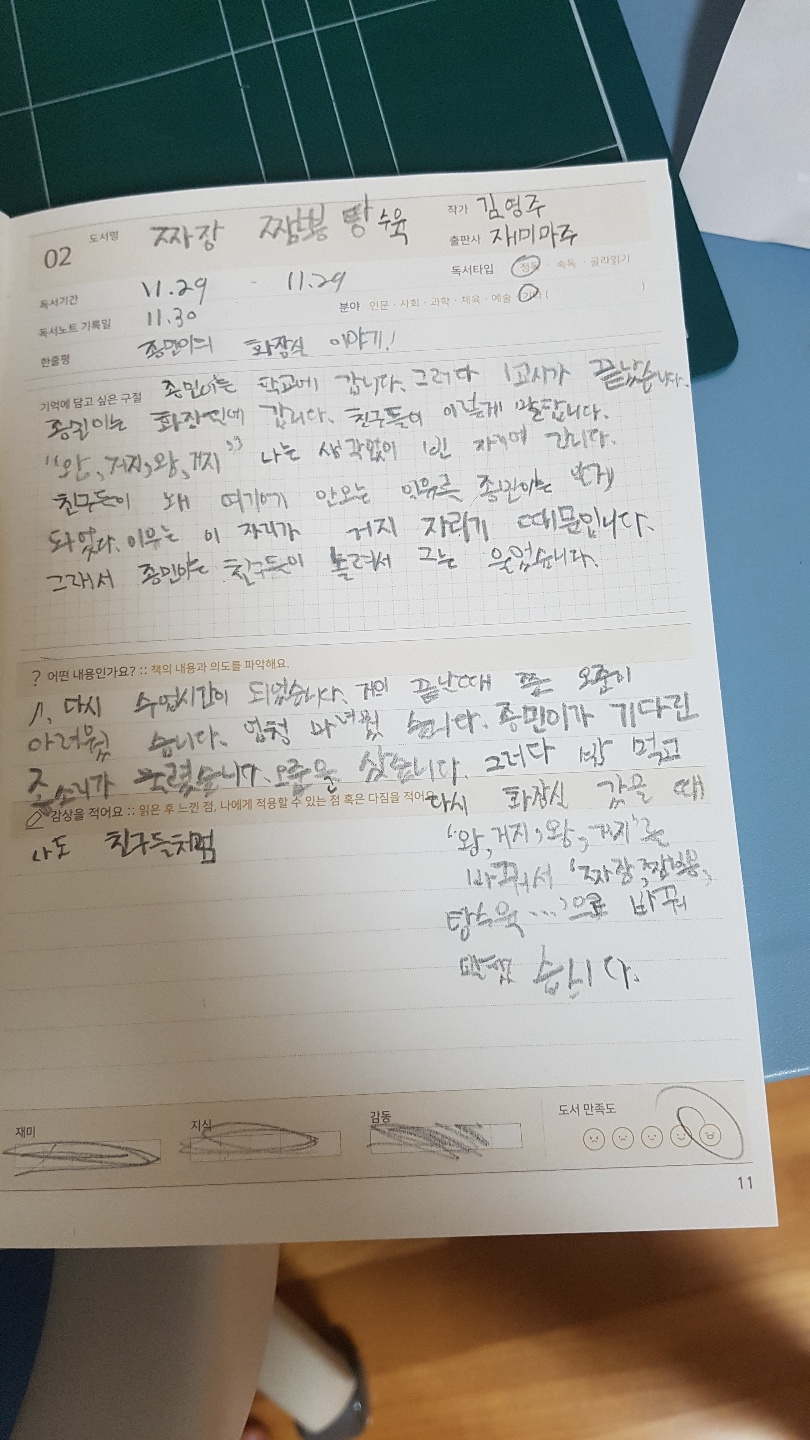 02 도서명 짜장 짬뽕 탕수육
작가 김영주
출판사 재미마주
독서기간 11.29 - 11.29
독서타입 정독 · 속독 · 골라읽기
독서노트 기록일 11.30
분야 인문 · 사회 · 과학 · 체육 · 예술 · 기타 ( )
한줄평 종민이의 화장실 이야기!
기억에 담고 싶은 구절 종민이는 학교에 갑니다. 그러다 1교시가 끝났습니다.
종민이는 화장실에 갑니다. 친구들이 이렇게 말합니다.
“왕, 거지, 왕, 거지” 나는 생각없이 빈 자리에 간니다.
친구들이 왜 여기에 안오는 이유를 종민이는 알게
되었다. 이유는 이 자리가 거지 자리기 때문입니다.
그래서 종민이는 친구들이 놀려서 그는 울었습니다.
? 어떤 내용인가요? :: 책의 내용과 의도를 파악해요.
다시 수업시간이 되었습니다. 거의 끝난때 쯤 오줌이
마려웠 습니다. 엄청 마녀웠 습니다. 종민이가 기다린
종소리가 울렸습니다. 오줌을 쌌습니다. 그러다 밥 먹고
감상을 적어요 :: 읽은 후 느낀 점, 나에게 적용할 수 있는 점 혹은 다짐을 적어요.
다시 화장실 갔을 때
나도 친구들처럼
‘왕, 거지, 왕, 거지’를
바꿔서 ‘짜장, 짬뽕,
탕수육 ...’으로 바꿔
말했 습니다.
재미
지식
감동
도서 만족도
11